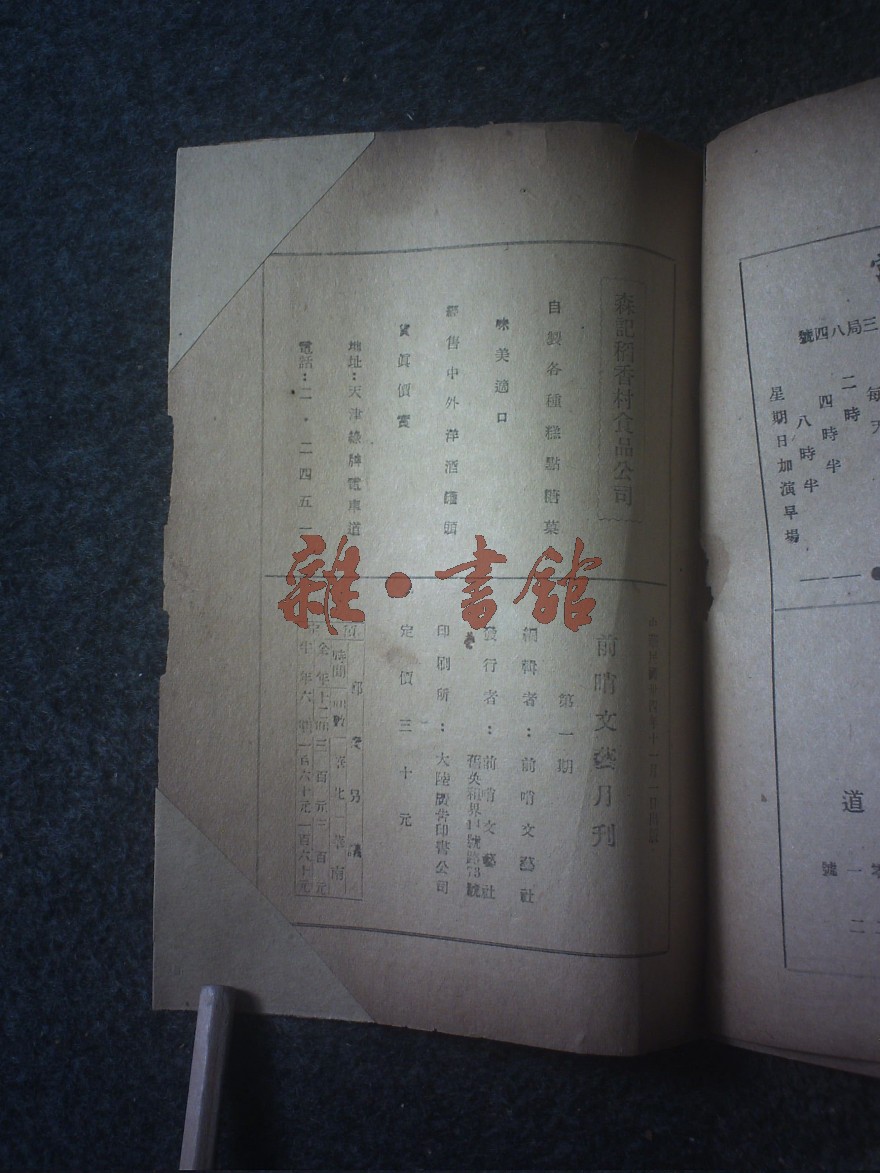 森記稻香村食品公司
自製各種糕點
味美適口
經售中外洋酒罐頭
貨眞價實
地址：天津綠牌電車道
電話：二·二四五一
雜·書館
前哨文藝月刊
第一期
編輯者：前哨文藝社
發行者：前哨文藝社
舊英租界11號路73號
印刷所：大陸廣告印書公司
定價三十元
時間
全年十二
半年六
三百元三百元
一百六十元一百六十元
三局八四號
二時
四時半
八時半
星期日加演早場
道
一號